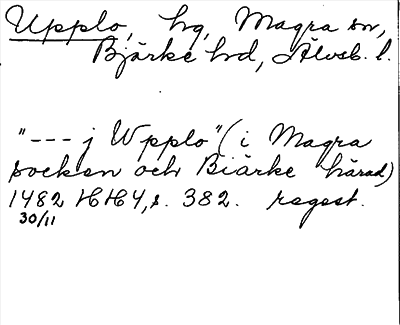 Upplo, hg, Magra sn,
Bjärke hd, Älvsb. l.
"--- j Wpplo" (i Magra
socken och Biärke härad)
1482 HH4, s. 382. regest.
30/11